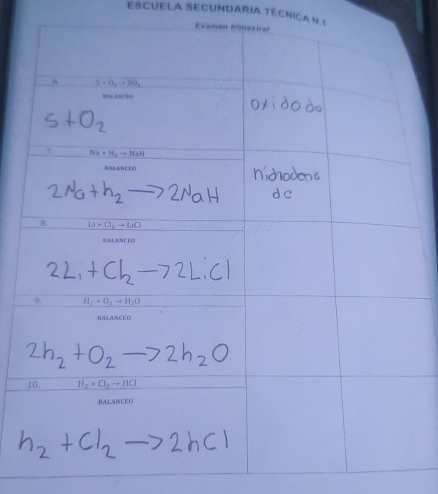 ESCUELA SECUNDARIA TÉCNICA N.1
Examen trimestral
6. S + O₂ → SO₂
BALANCEO
S+O₂
oxido de
7. Na + H₂ → NaH
BALANCEO
2Na+h₂ → 2NaH
hidrodeno
de
8. Li + Cl₂ → LiCl
BALANCEO
2Li+Cl₂ → 2LiCl
9. H₂ + O₂ → H₂O
BALANCEO
2h₂+O₂ → 2h₂O
10. H₂ + Cl₂ → HCl
BALANCEO
h₂+Cl₂ → 2hCl